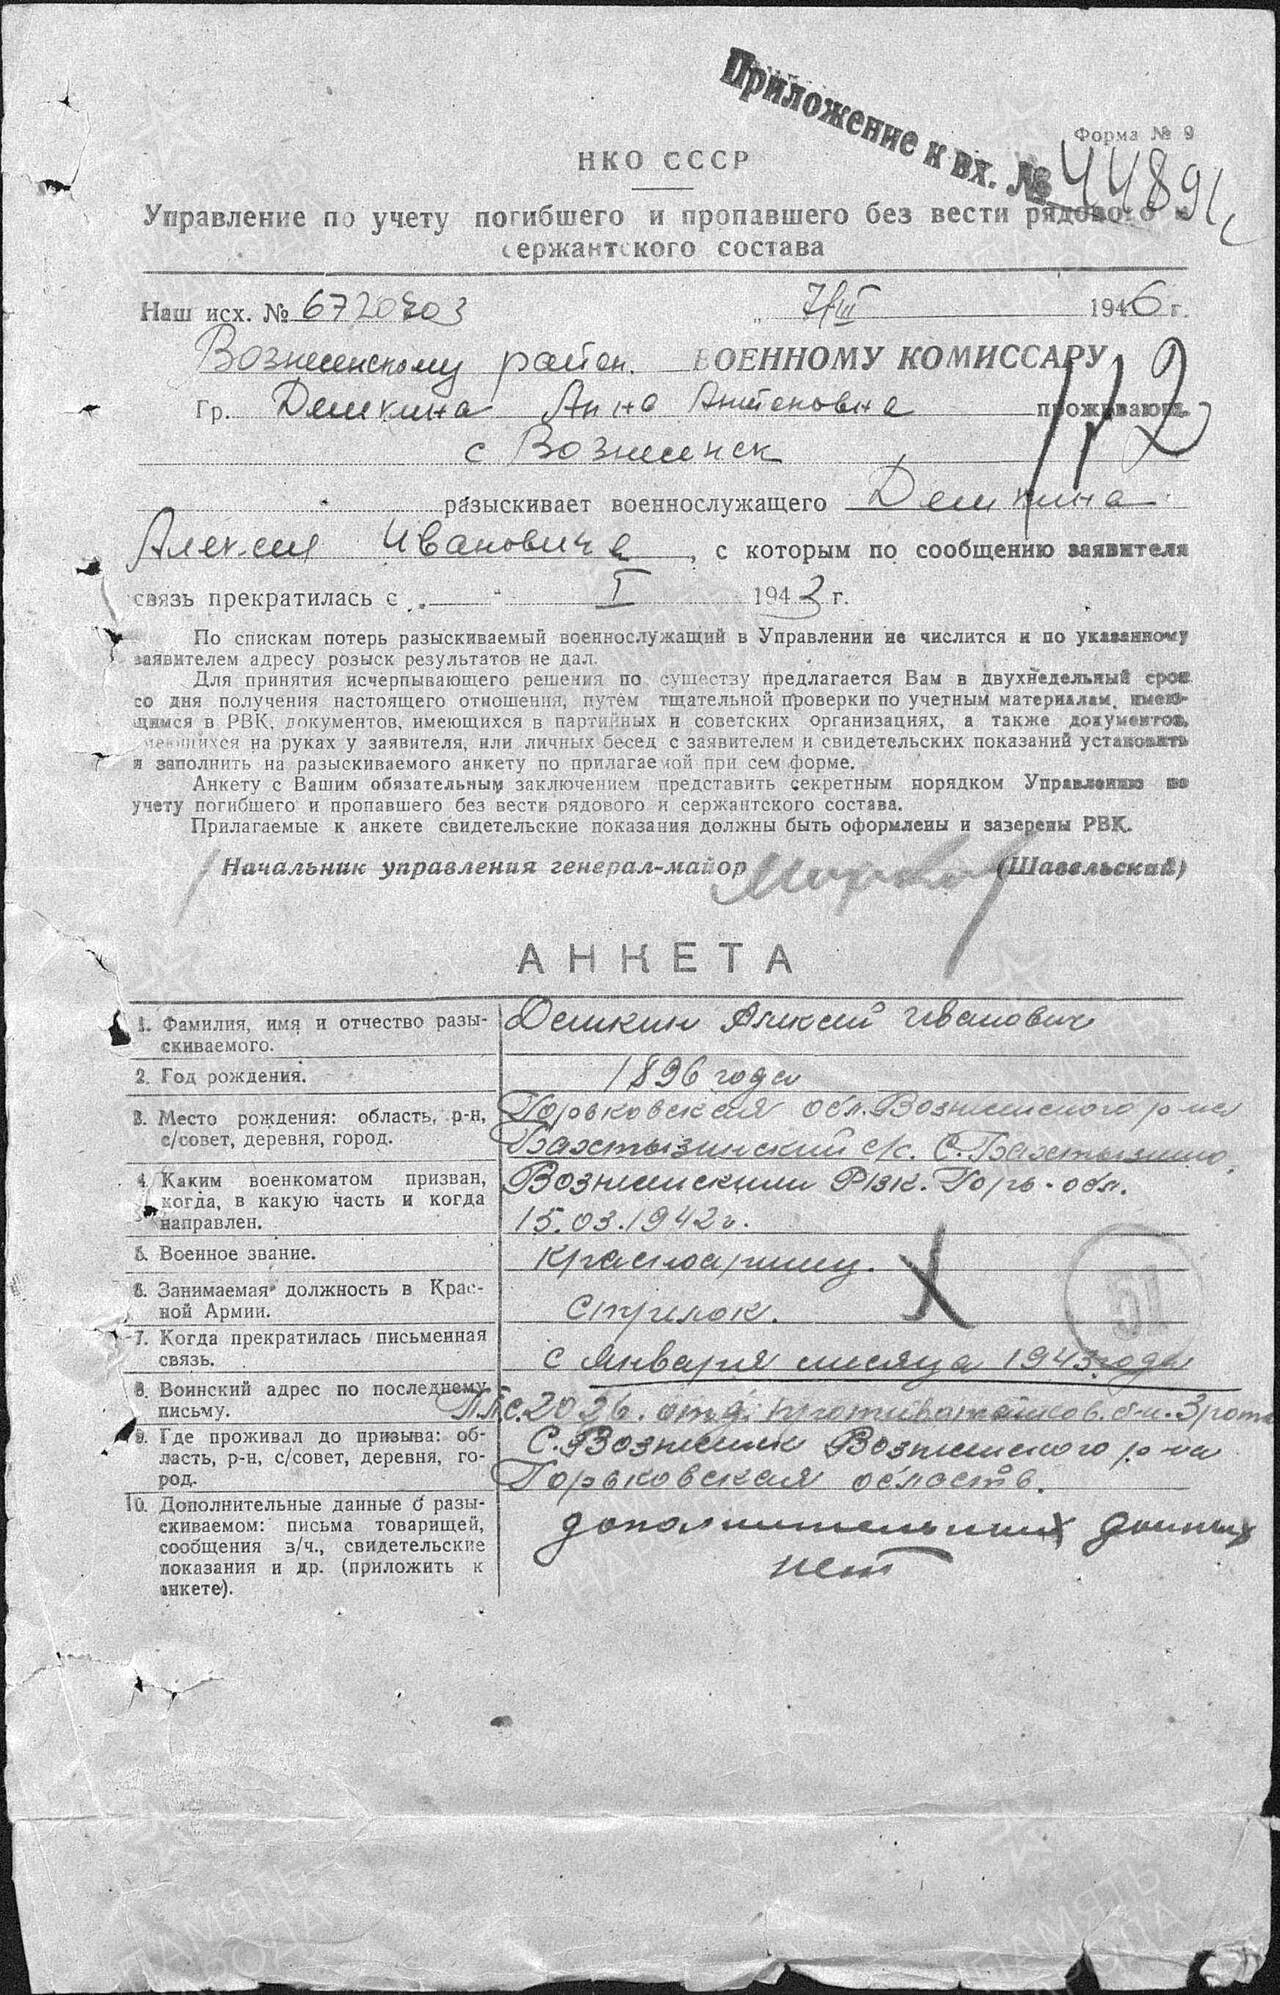 Приложение к вх. № 44891с
Форма № 9
НКО СССР
Управление по учету погибшего и пропавшего без вести рядового и
сержантского состава
Наш исх. № 6720703 „ 7/III 1946 г.
Вознесенскому район. ВОЕННОМУ КОМИССАРУ
112
Гр. Демкина Анна Антоновна проживающ.
с Вознесенск
разыскивает военнослужащего Демкина
Алексея Ивановича, с которым по сообщению заявителя
связь прекратилась с „ " I 1943 г.
По спискам потерь разыскиваемый военнослужащий в Управлении не числится и по указанному
заявителем адресу розыск результатов не дал.
Для принятия исчерпывающего решения по существу предлагается Вам в двухнедельный срок
со дня получения настоящего отношения, путем тщательной проверки по учетным материалам, имею-
щимся в РВК, документов, имеющихся в партийных и советских организациях, а также документов,
имеющихся на руках у заявителя, или личных бесед с заявителем и свидетельских показаний установить
и заполнить на разыскиваемого анкету по прилагаемой при сем форме.
Анкету с Вашим обязательным заключением представить секретным порядком Управлению по
учету погибшего и пропавшего без вести рядового и сержантского состава.
Прилагаемые к анкете свидетельские показания должны быть оформлены и заверены РВК.
Начальник управления генерал-майор (Шавельский)
АНКЕТА
1. Фамилия, имя и отчество разы-
скиваемого.
Демкин Алексей Иванович
2. Год рождения.
1896 года
3. Место рождения: область, р-н,
с/совет, деревня, город.
Горьковская обл. Вознесенского р-на
Бахтызинский с/с. С. Бахтызино.
4. Каким военкоматом призван,
когда, в какую часть и когда
направлен.
Вознесенским РВК. Горь-обл.
15.03.1942 г.
5. Военное звание.
красноармеец.
6. Занимаемая должность в Крас-
ной Армии.
стрелок.
51
7. Когда прекратилась письменная
связь.
с Января месяца 1943 года
8. Воинский адрес по последнему
письму.
П.П.С. 2026. отд. противотанков. б-н. 3 рота
9. Где проживал до призыва: об-
ласть, р-н, с/совет, деревня, го-
род.
С. Вознесенск Вознесенского р-на
Горьковская область.
10. Дополнительные данные о разы-
скиваемом: письма товарищей,
сообщения з/ч., свидетельские
показания и др. (приложить к
анкете).
дополнительных данных
нет
ПАМЯТЬ
НАРОДА